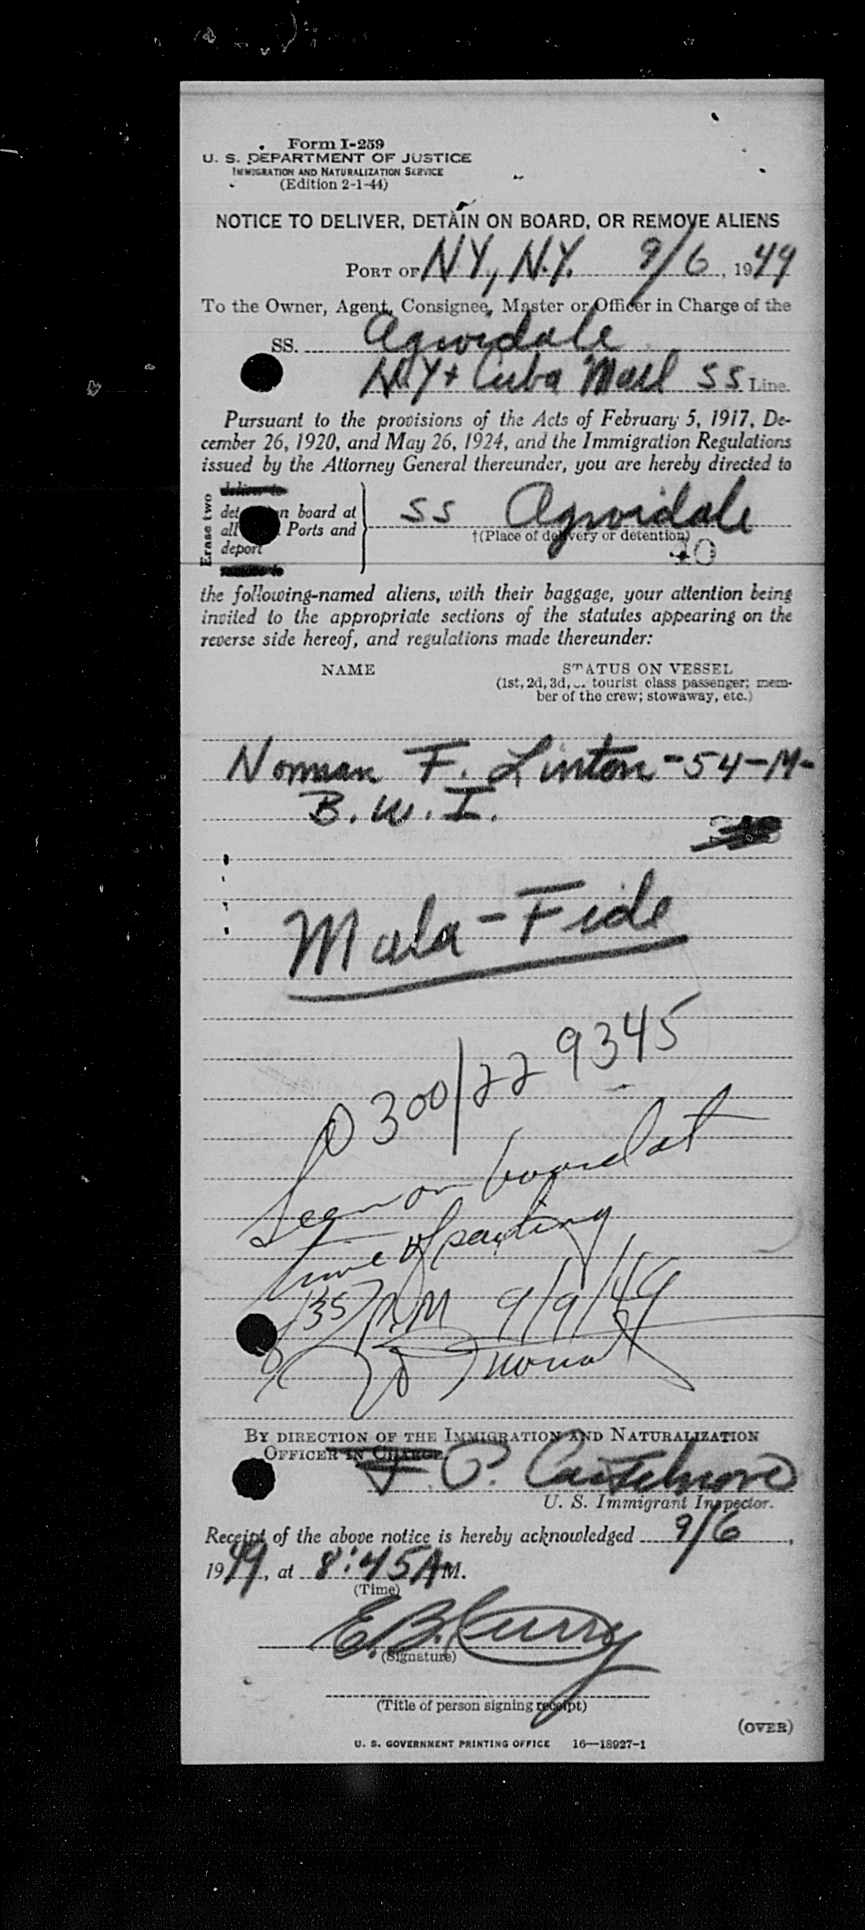 Form I-259
U. S. DEPARTMENT OF JUSTICE
IMMIGRATION AND NATURALIZATION SERVICE
(Edition 2-1-44)
NOTICE TO DELIVER, DETAIN ON BOARD, OR REMOVE ALIENS
PORT OF NY, N.Y. 9/6, 1949
To the Owner, Agent, Consignee, Master or Officer in Charge of the
SS. Agwidale
NY + Cuba Mail SS Line.
Pursuant to the provisions of the Acts of February 5, 1917, De-
cember 26, 1920, and May 26, 1924, and the Immigration Regulations
issued by the Attorney General thereunder, you are hereby directed to
Erase two
deliver to
det n board at
all Ports and
deport
remove to
SS Agwidale
†(Place of delivery or detention)
the following-named aliens, with their baggage, your attention being
invited to the appropriate sections of the statutes appearing on the
reverse side hereof, and regulations made thereunder:
NAME STATUS ON VESSEL
(1st, 2d, 3d, or tourist class passenger; mem-
ber of the crew; stowaway, etc.)
Norman F. Linton - 54 - M -
B. W. I.
Mala - Fide
0300/22 9345
Seen on board at
time of sailing
PM 9/9/49
BY DIRECTION OF THE IMMIGRATION AND NATURALIZATION
OFFICER IN CHARGE
P.
U. S. Immigrant Inspector.
Receipt of the above notice is hereby acknowledged 9/6,
1949, at 8:45 AM.
(Time)
E. B. Curry
(Signature)
(Title of person signing receipt)
(OVER)
U. S. GOVERNMENT PRINTING OFFICE 16—18927-1